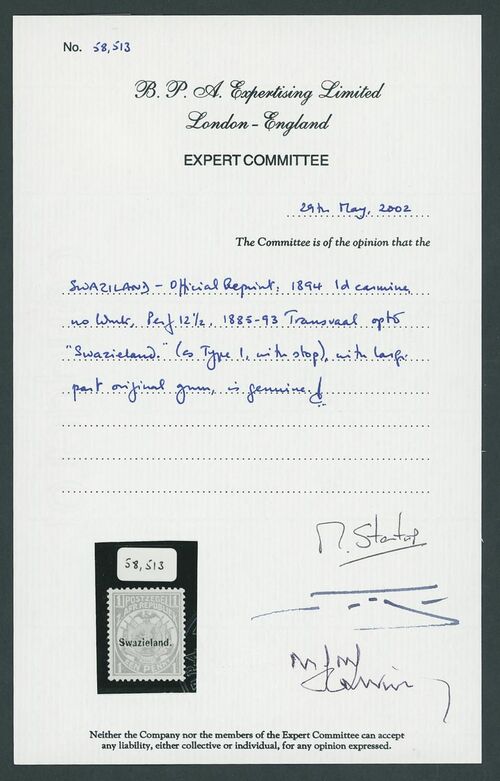 No. 58,513
B. P. A. Expertising Limited
London - England
EXPERT COMMITTEE
29th May, 2002
The Committee is of the opinion that the
SWAZILAND - Official Reprint: 1894 1d carmine,
no Wmk, Perf 12½, 1885-93 Transvaal optd
"Swazieland." (as Type 1, with stop), with large
part original gum, is genuine.
M. Startup
58,513
POSTZEGEL
Swazieland.
EEN PENNY
Neither the Company nor the members of the Expert Committee can accept
any liability, either collective or individual, for any opinion expressed.